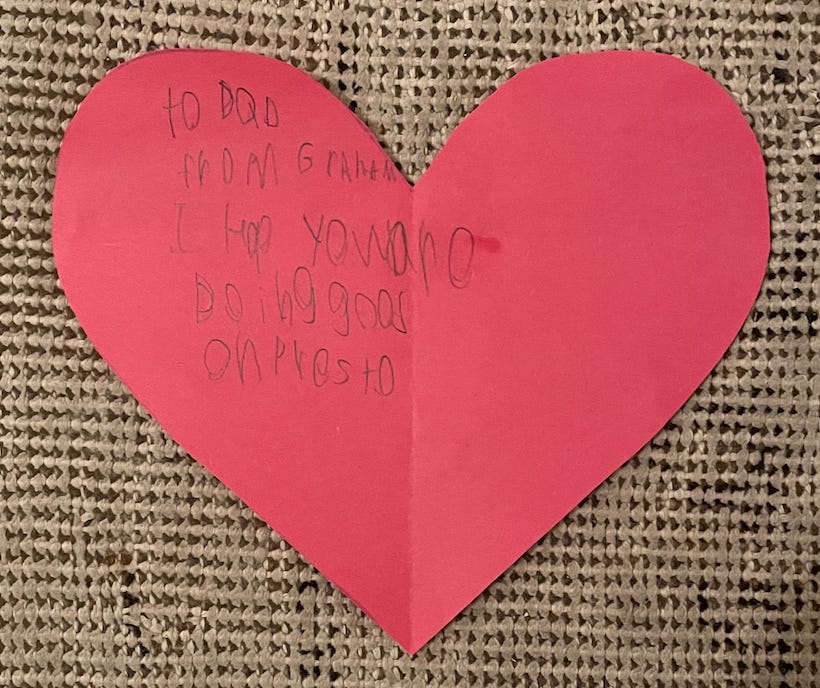 to DaD
from GrahaM
I hop YoU are
Doing good
on Presto